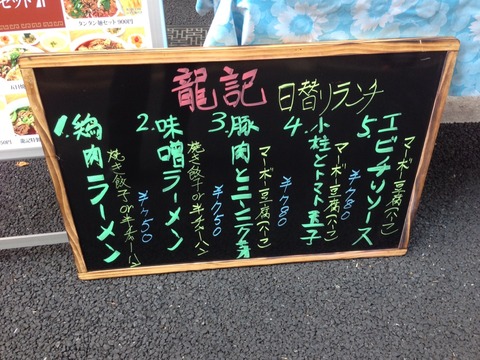 龍記 日替りランチ
1. 鶏肉ラーメン
焼き餃子or半チャーハン
¥750
2. 味噌ラーメン
焼き餃子or半チャーハン
¥750
3. 豚肉とニンニク芽
マーボー豆腐(ハーフ)
¥780
4. 小柱とトマト玉子
マーボー豆腐(ハーフ)
¥780
5. エビチリソース
マーボー豆腐(ハーフ)
セット
タンタン麺セット900円